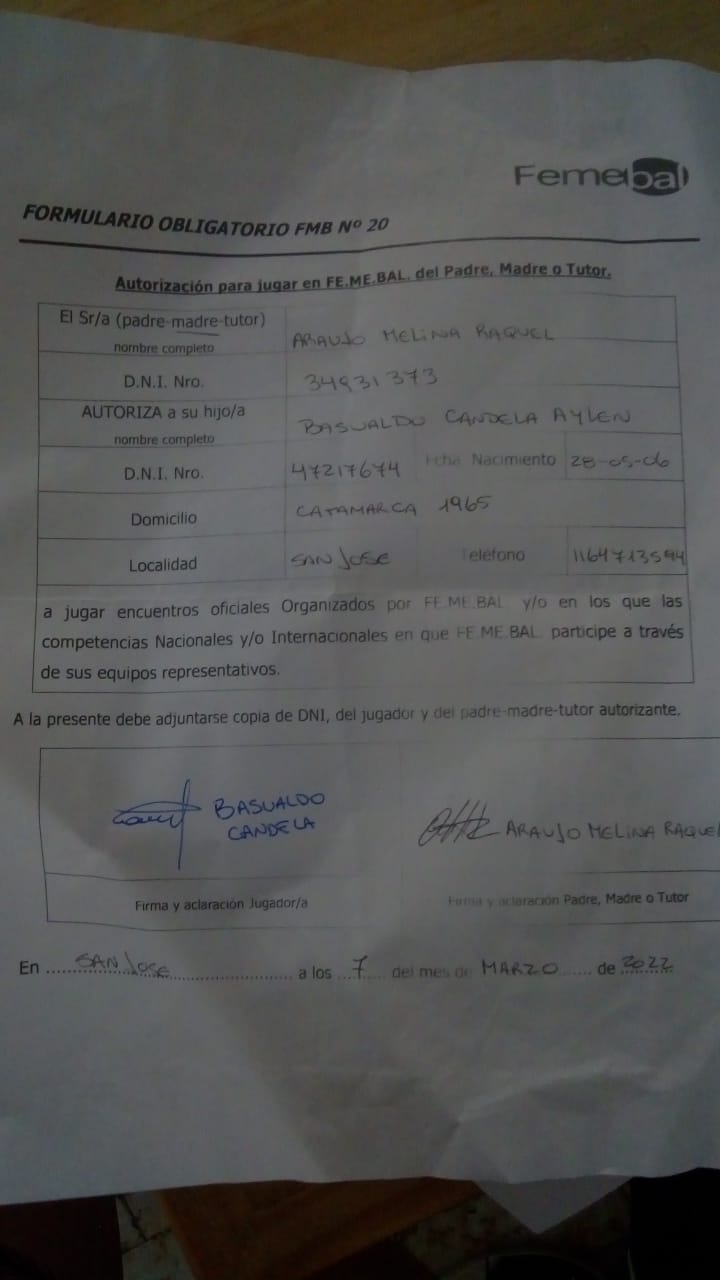 Femebal
FORMULARIO OBLIGATORIO FMB Nº 20
Autorización para jugar en FE.ME.BAL. del Padre, Madre o Tutor.
El Sr/a (padre-madre-tutor)
nombre completo
ARAUJO MELINA RAQUEL
D.N.I. Nro.
34931373
AUTORIZA a su hijo/a
nombre completo
BASUALDO CANDELA AYLEN
D.N.I. Nro.
47217674
Fcha Nacimiento
28-05-06
Domicilio
CATAMARCA 1965
Localidad
SAN JOSE
Teléfono
1164713594
a jugar encuentros oficiales Organizados por FE.ME.BAL y/o en los que las
competencias Nacionales y/o Internacionales en que FE.ME.BAL. participe a través
de sus equipos representativos.
A la presente debe adjuntarse copia de DNI, del jugador y del padre-madre-tutor autorizante.
BASUALDO
CANDELA
ARAUJO MELINA RAQUEL
Firma y aclaración Jugador/a
Firma y aclaración Padre, Madre o Tutor
En SAN JOSE a los 7 del mes de MARZO de 2022